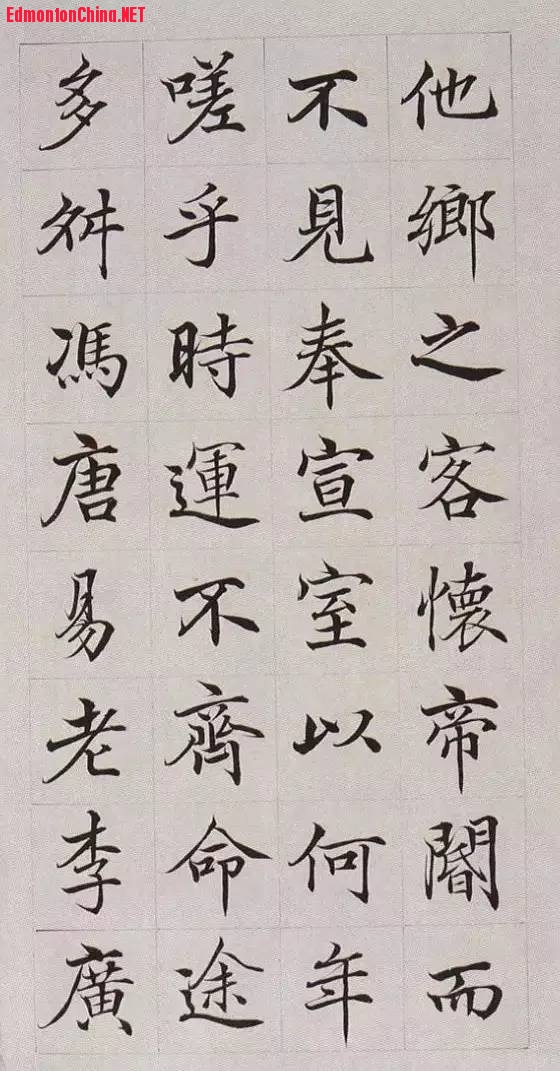 EdmontonChina.NET
他鄉之客懷帝閽而
不見奉宣室以何年
嗟乎時運不齊命途
多舛馮唐易老李廣